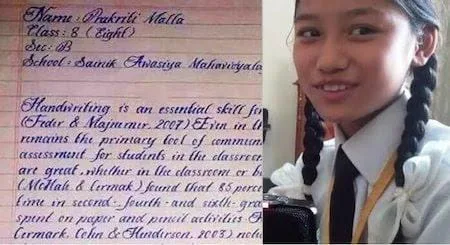 Name : Prakriti Malla
Class : 8 (Eight)
Sec : B
School : Sainik Awasiya Mahavidyalay
Handwriting is an essential skill for
(Feder & Majnemer, 2007) Even in th
remains the primary tool of commun
assessment for students in the classroom
are great, whether in the classroom or be
(McHale & Cermak) found that 85 perc
time in second- fourth- and sixth- gra
spent on paper and pencil activities
Cermark, Cohn & Henderson, 2003)